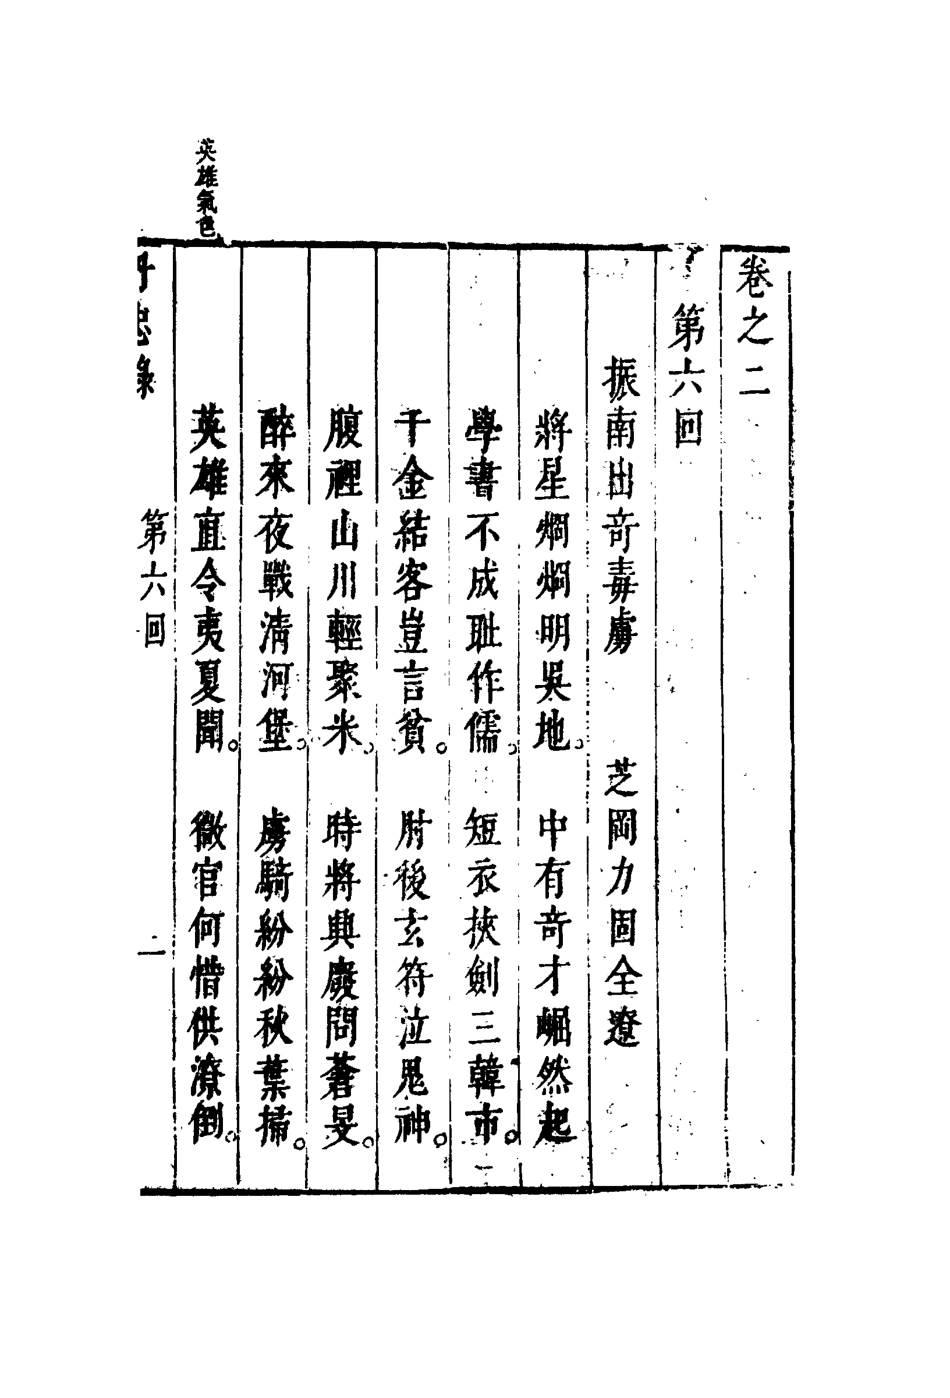 卷之二
第六回
振南出奇毒虜 芝岡力固全遼
將星烱烱明吳地。 中有奇才崛然起
學書不成耻作儒。 短衣挾劍三韓市。
千金結客豈言貧。 肘後玄符泣鬼神。
腹裡山川輕聚米。 時將興廢問蒼旻。
醉來夜戰清河堡。 虜騎紛紛秋葉掃。
英雄直令夷夏聞。 微官何惜供潦倒。
英雄氣色
丹忠錄 第六回 一